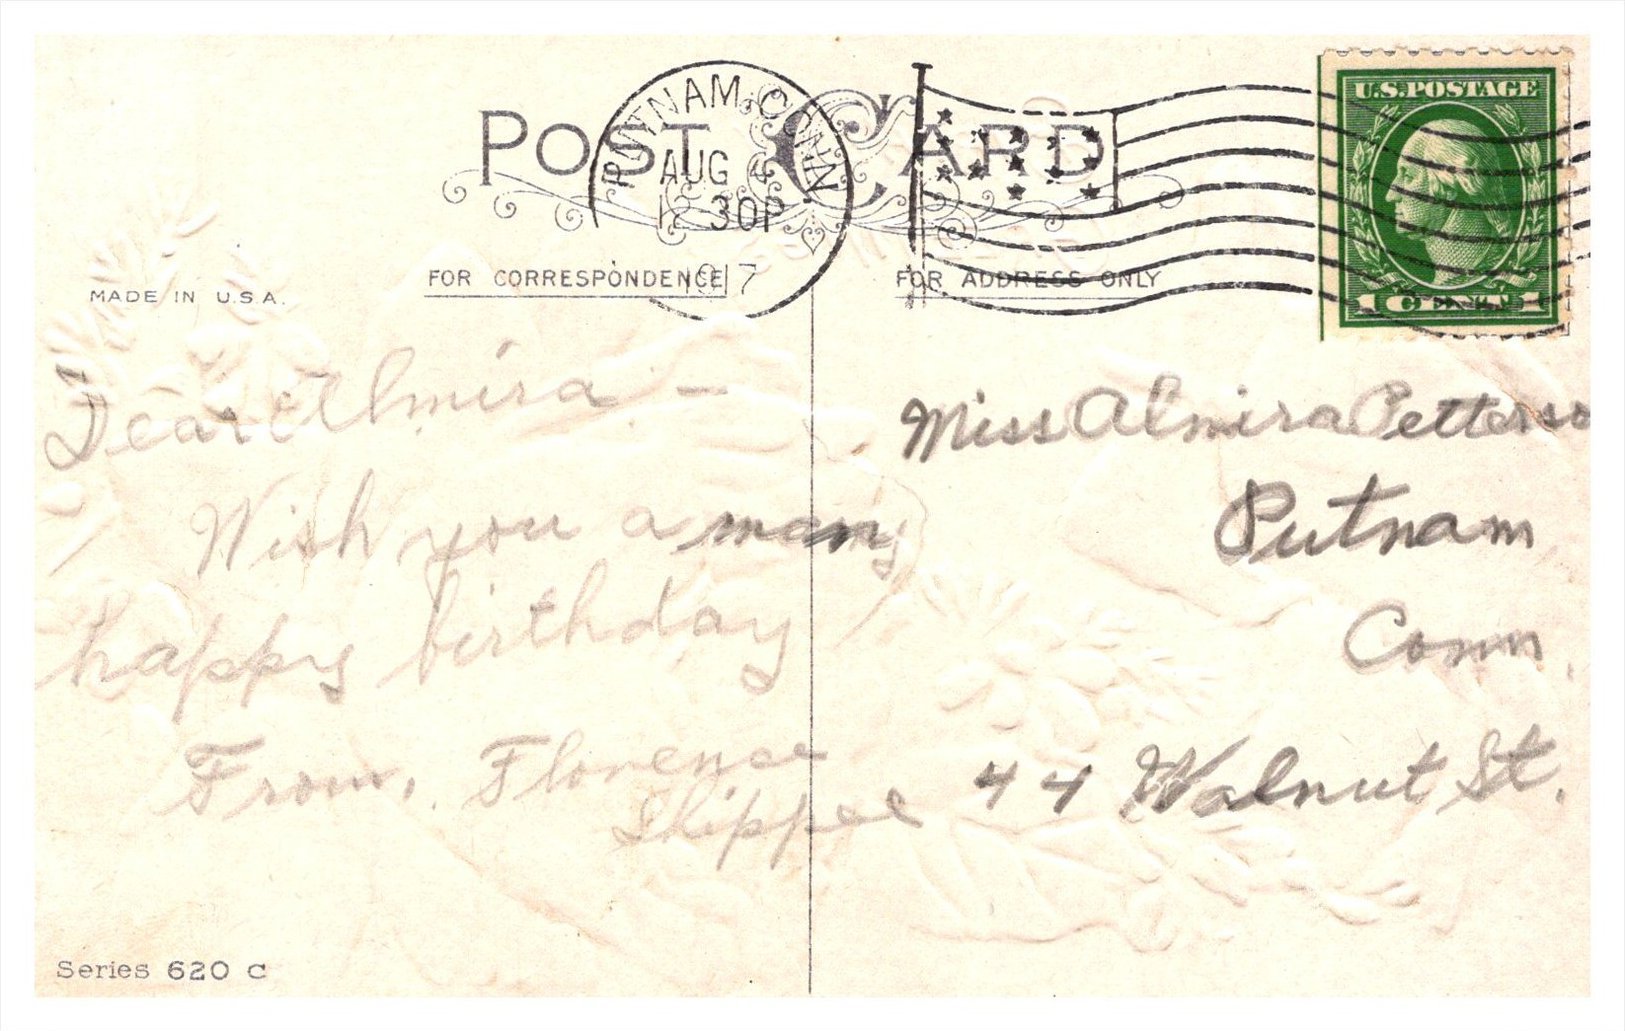 POST CARD
PUTNAM, CONN.
AUG
12 30P
1917
U.S. POSTAGE
1 CENT 1
MADE IN U.S.A.
FOR CORRESPONDENCE
FOR ADDRESS ONLY
Dear Almira –
Wish you a many
happy birthday
From, Florence
Skippee
Miss Almira Petterso
Putnam
Conn.
44 Walnut St.
Series 620 C